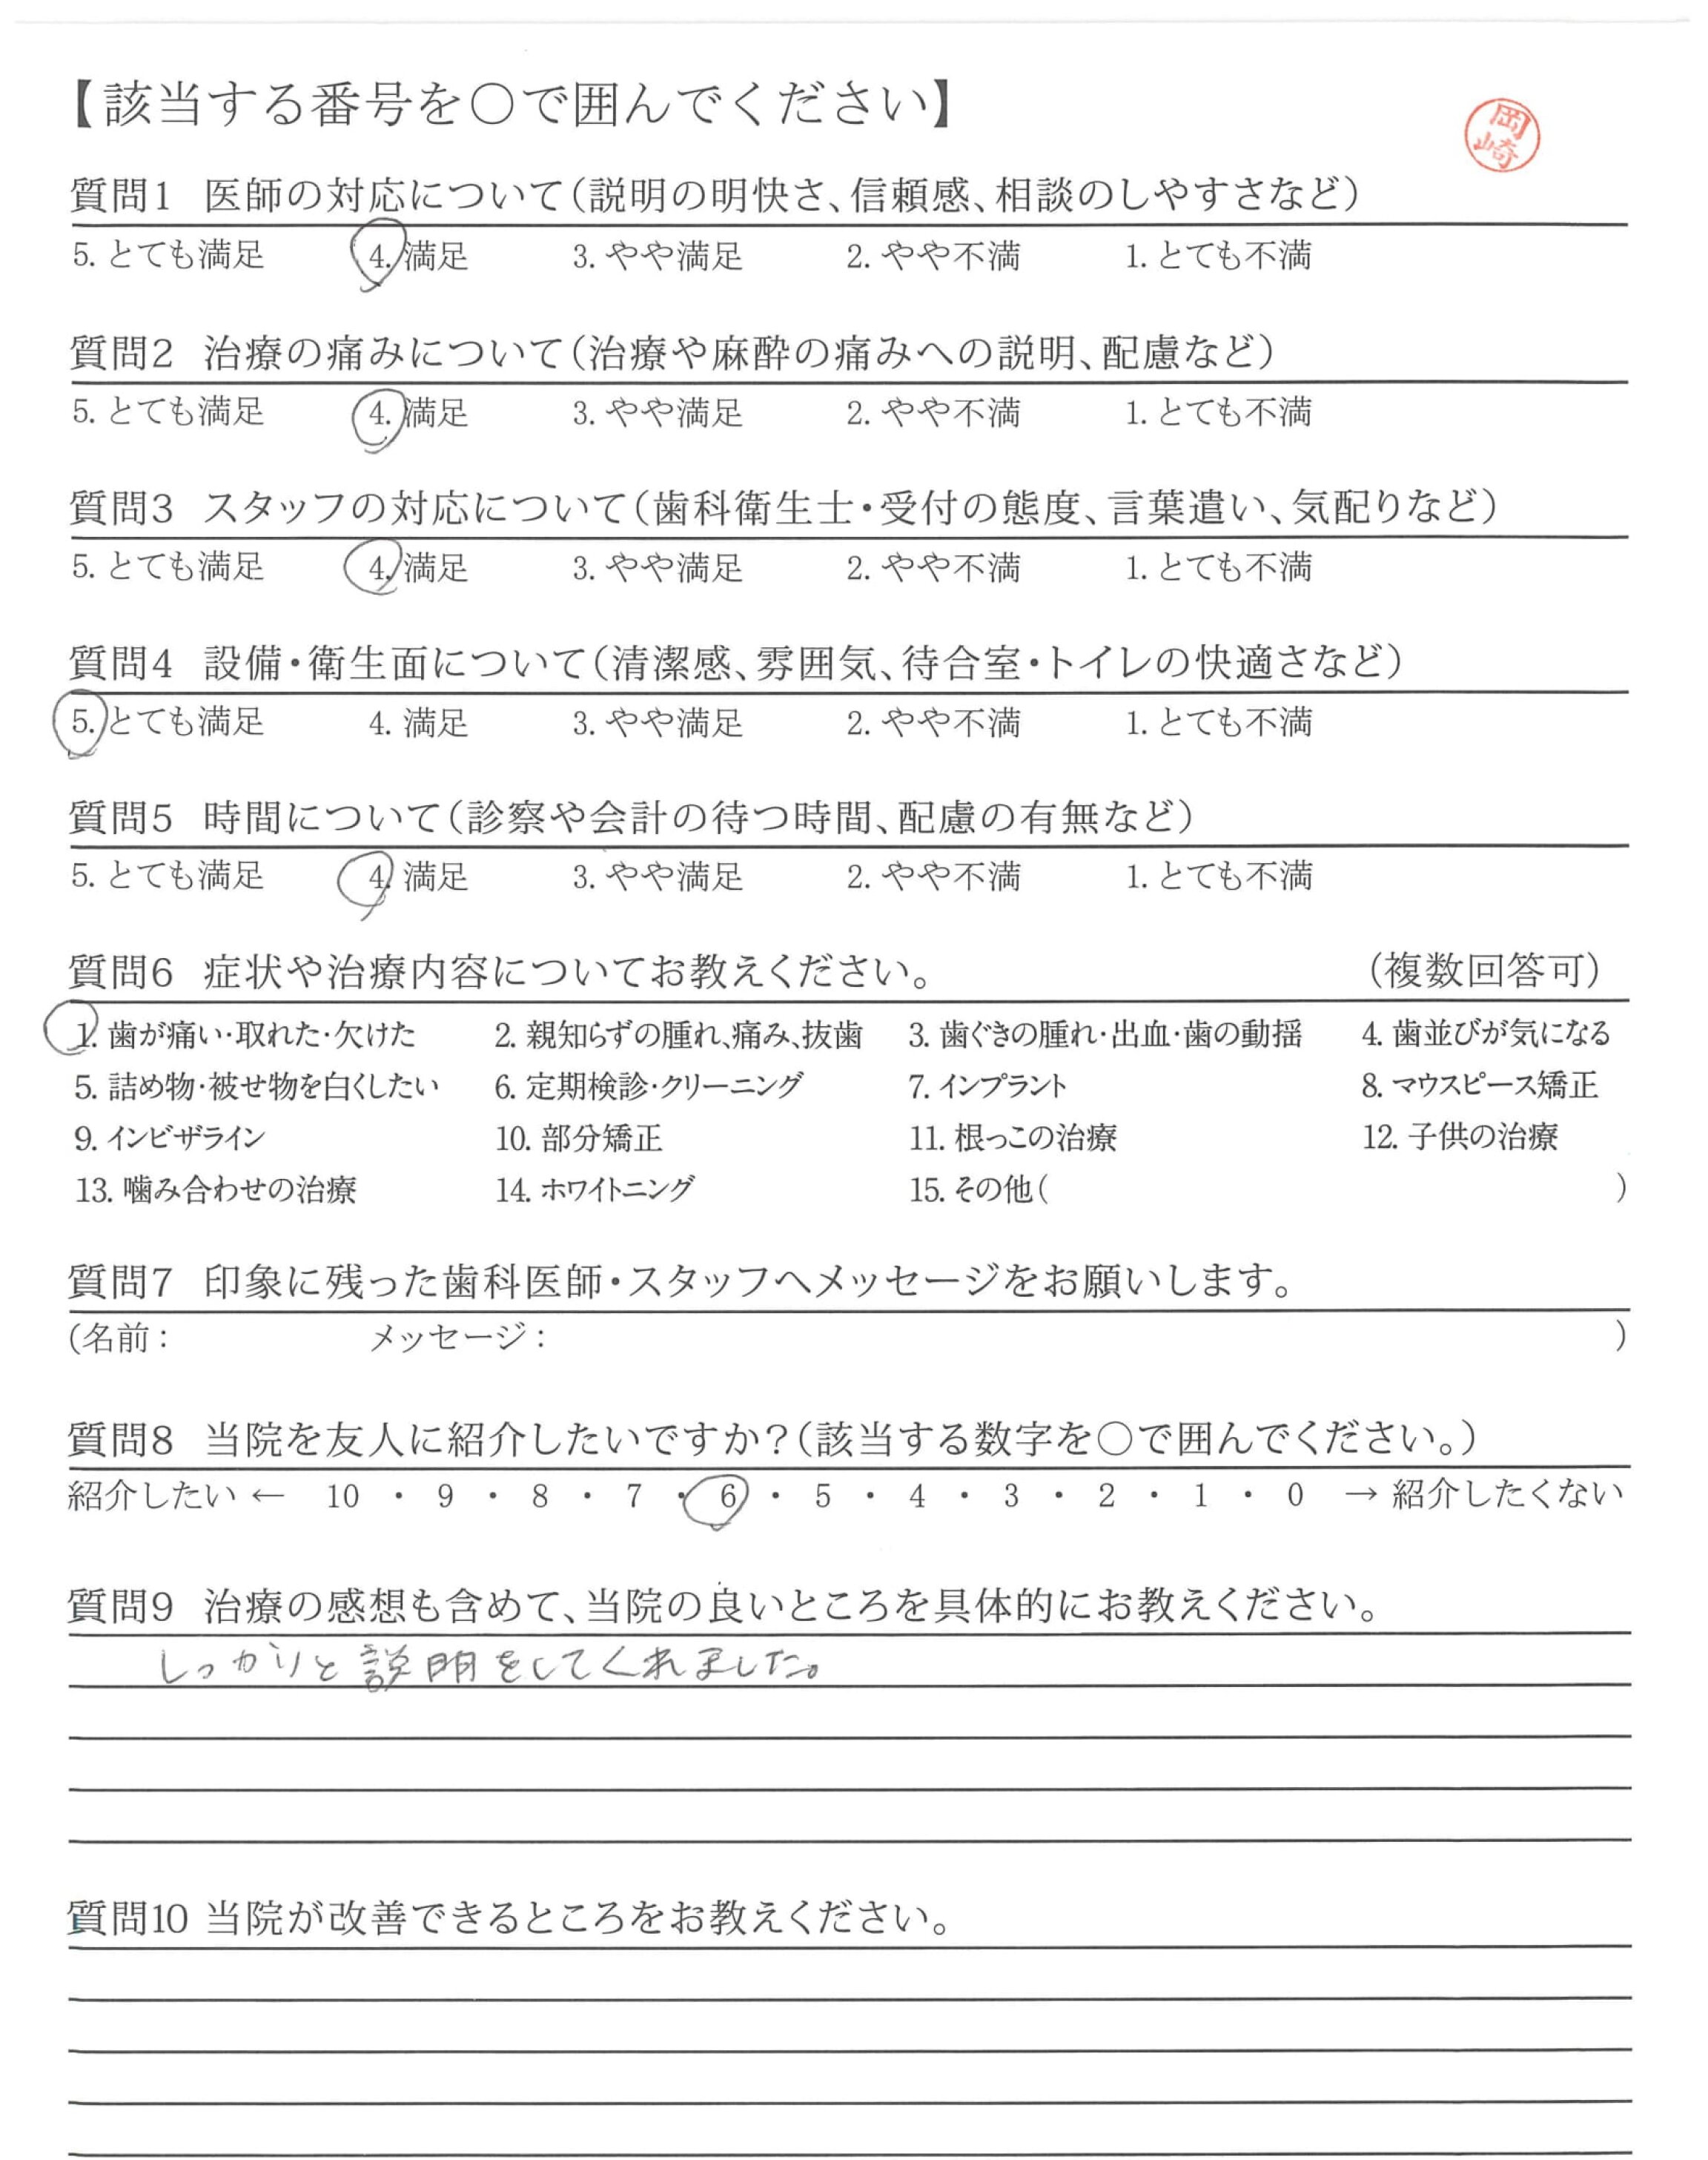 【該当する番号を○で囲んでください】
岡崎
質問1 医師の対応について(説明の明快さ、信頼感、相談のしやすさなど)
5. とても満足 4. 満足 3. やや満足 2. やや不満 1. とても不満
質問2 治療の痛みについて(治療や麻酔の痛みへの説明、配慮など)
5. とても満足 4. 満足 3. やや満足 2. やや不満 1. とても不満
質問3 スタッフの対応について(歯科衛生士・受付の態度、言葉遣い、気配りなど)
5. とても満足 4. 満足 3. やや満足 2. やや不満 1. とても不満
質問4 設備・衛生面について(清潔感、雰囲気、待合室・トイレの快適さなど)
5. とても満足 4. 満足 3. やや満足 2. やや不満 1. とても不満
質問5 時間について(診察や会計の待つ時間、配慮の有無など)
5. とても満足 4. 満足 3. やや満足 2. やや不満 1. とても不満
質問6 症状や治療内容についてお教えください。 (複数回答可)
1. 歯が痛い・取れた・欠けた 2. 親知らずの腫れ、痛み、抜歯 3. 歯ぐきの腫れ・出血・歯の動揺 4. 歯並びが気になる
5. 詰め物・被せ物を白くしたい 6. 定期検診・クリーニング 7. インプラント 8. マウスピース矯正
9. インビザライン 10. 部分矯正 11. 根っこの治療 12. 子供の治療
13. 噛み合わせの治療 14. ホワイトニング 15. その他( )
質問7 印象に残った歯科医師・スタッフへメッセージをお願いします。
(名前: メッセージ: )
質問8 当院を友人に紹介したいですか?(該当する数字を○で囲んでください。)
紹介したい ← 10 ・ 9 ・ 8 ・ 7 ・ 6 ・ 5 ・ 4 ・ 3 ・ 2 ・ 1 ・ 0 → 紹介したくない
質問9 治療の感想も含めて、当院の良いところを具体的にお教えください。
しっかりと説明をしてくれました。
質問10 当院が改善できるところをお教えください。